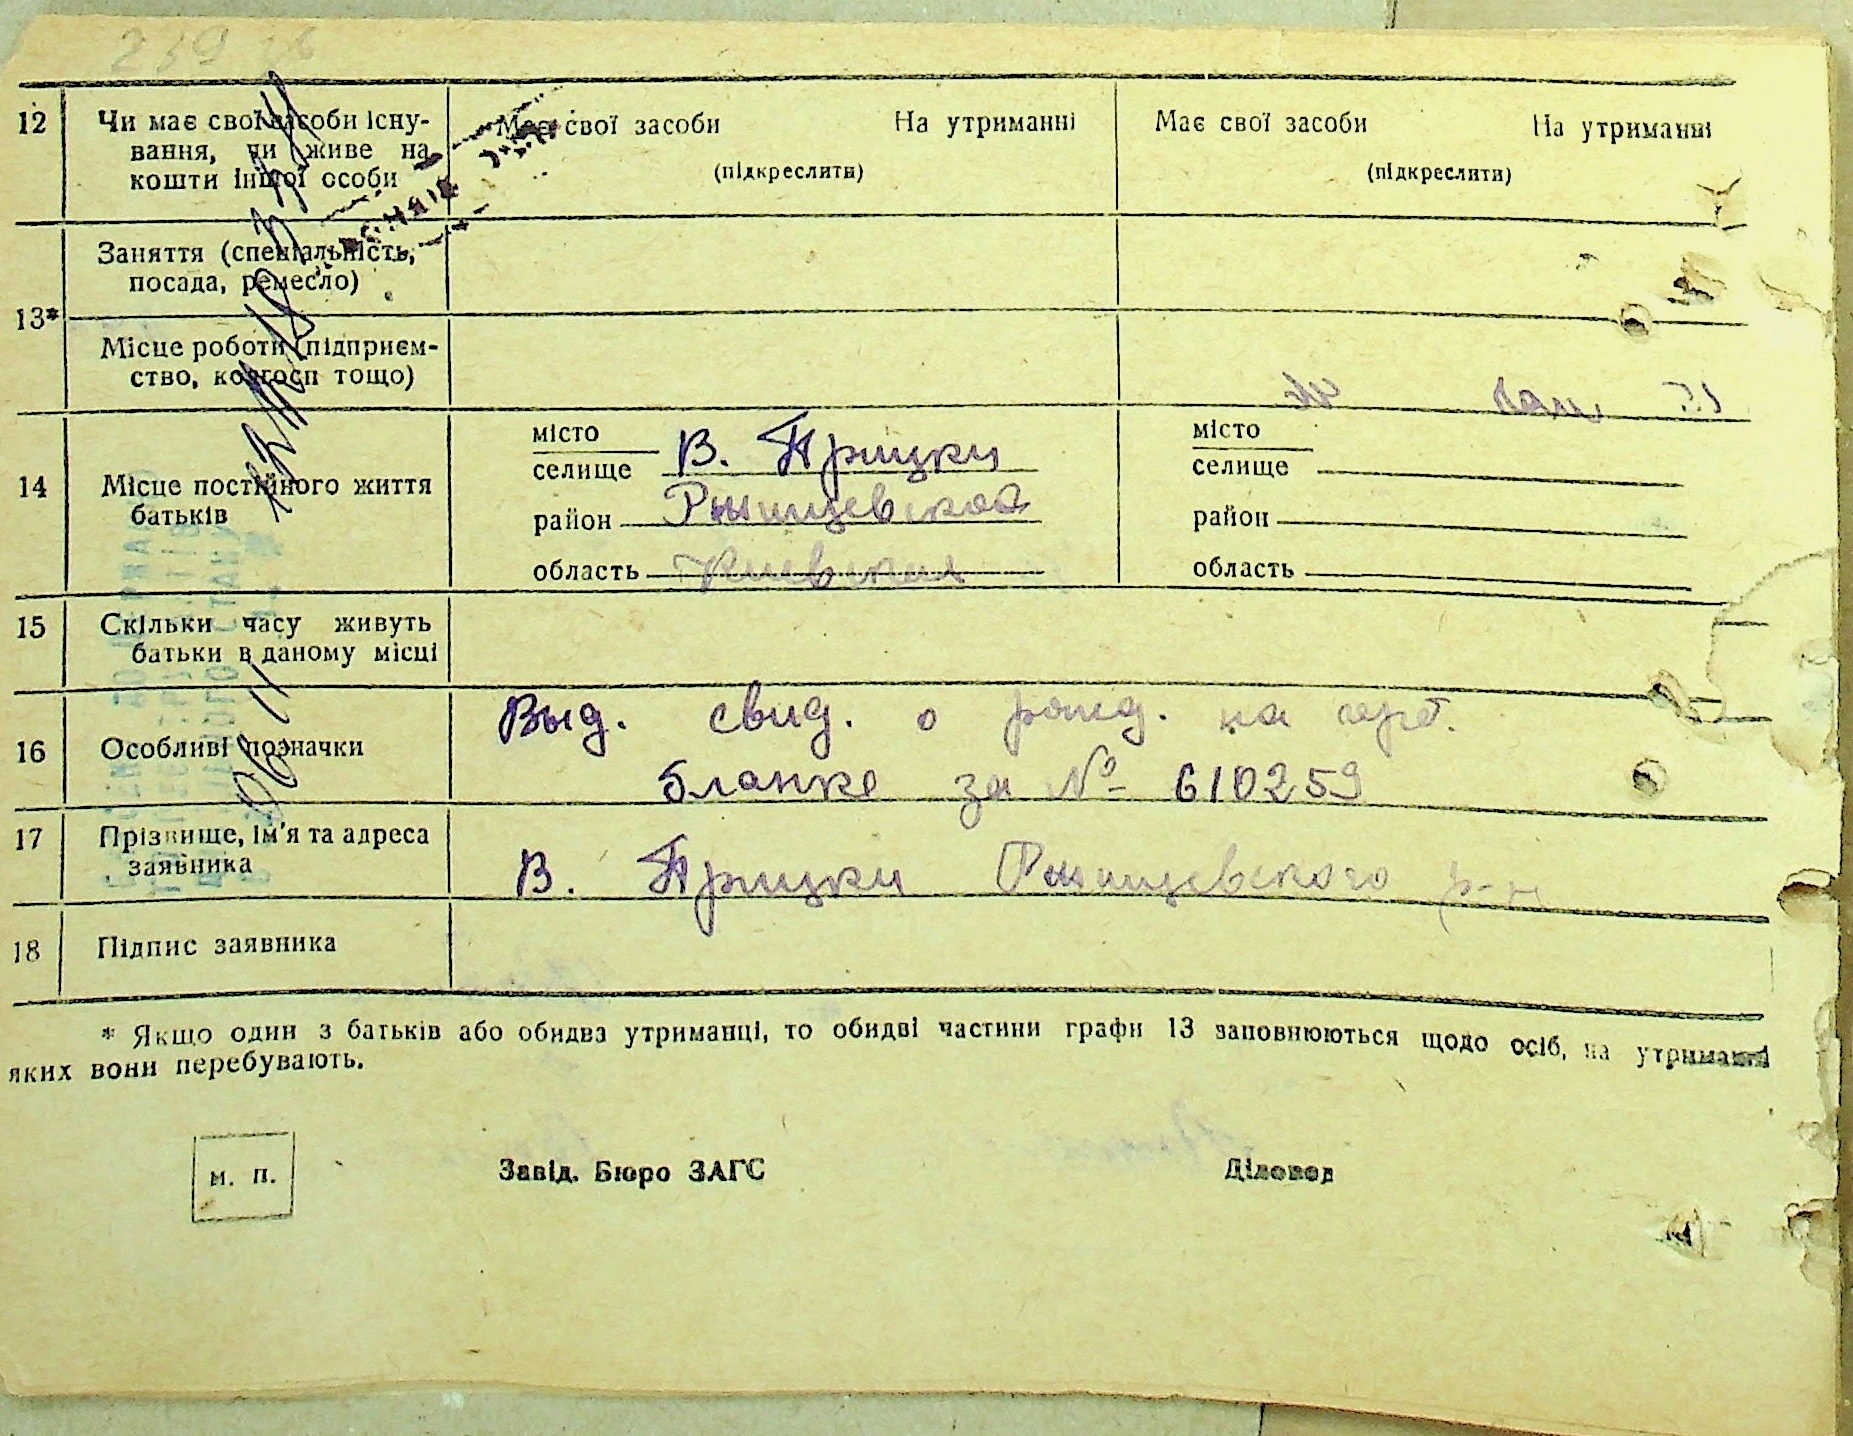 12 Чи має свої засоби існу- Має свої засоби На утриманні Має свої засоби На утриманні
вання, чи живе на
кошти іншої особи (підкреслити) (підкреслити)
Заняття (спеціальність,
посада, ремесло)
13*
Місце роботи (підприєм-
ство, колгосп тощо)
місто місто
селище В. Прицки селище
14 Місце постійного життя
батьків район Ржищевской район
область Киевския область
15 Скільки часу живуть
батьки в даному місці
Выд. свид. о рожд.
16 Особливі позначки
бланке за № 610259
17 Прізвище, ім'я та адреса
заявника В. Прицки Ржищевского р-н
18 Підпис заявника
* Якщо один з батьків або обидва утриманці, то обидві частини графи 13 заповнюються щодо осіб, на утриманні
яких вони перебувають.
м. п. Завід. Бюро ЗАГС Діловод